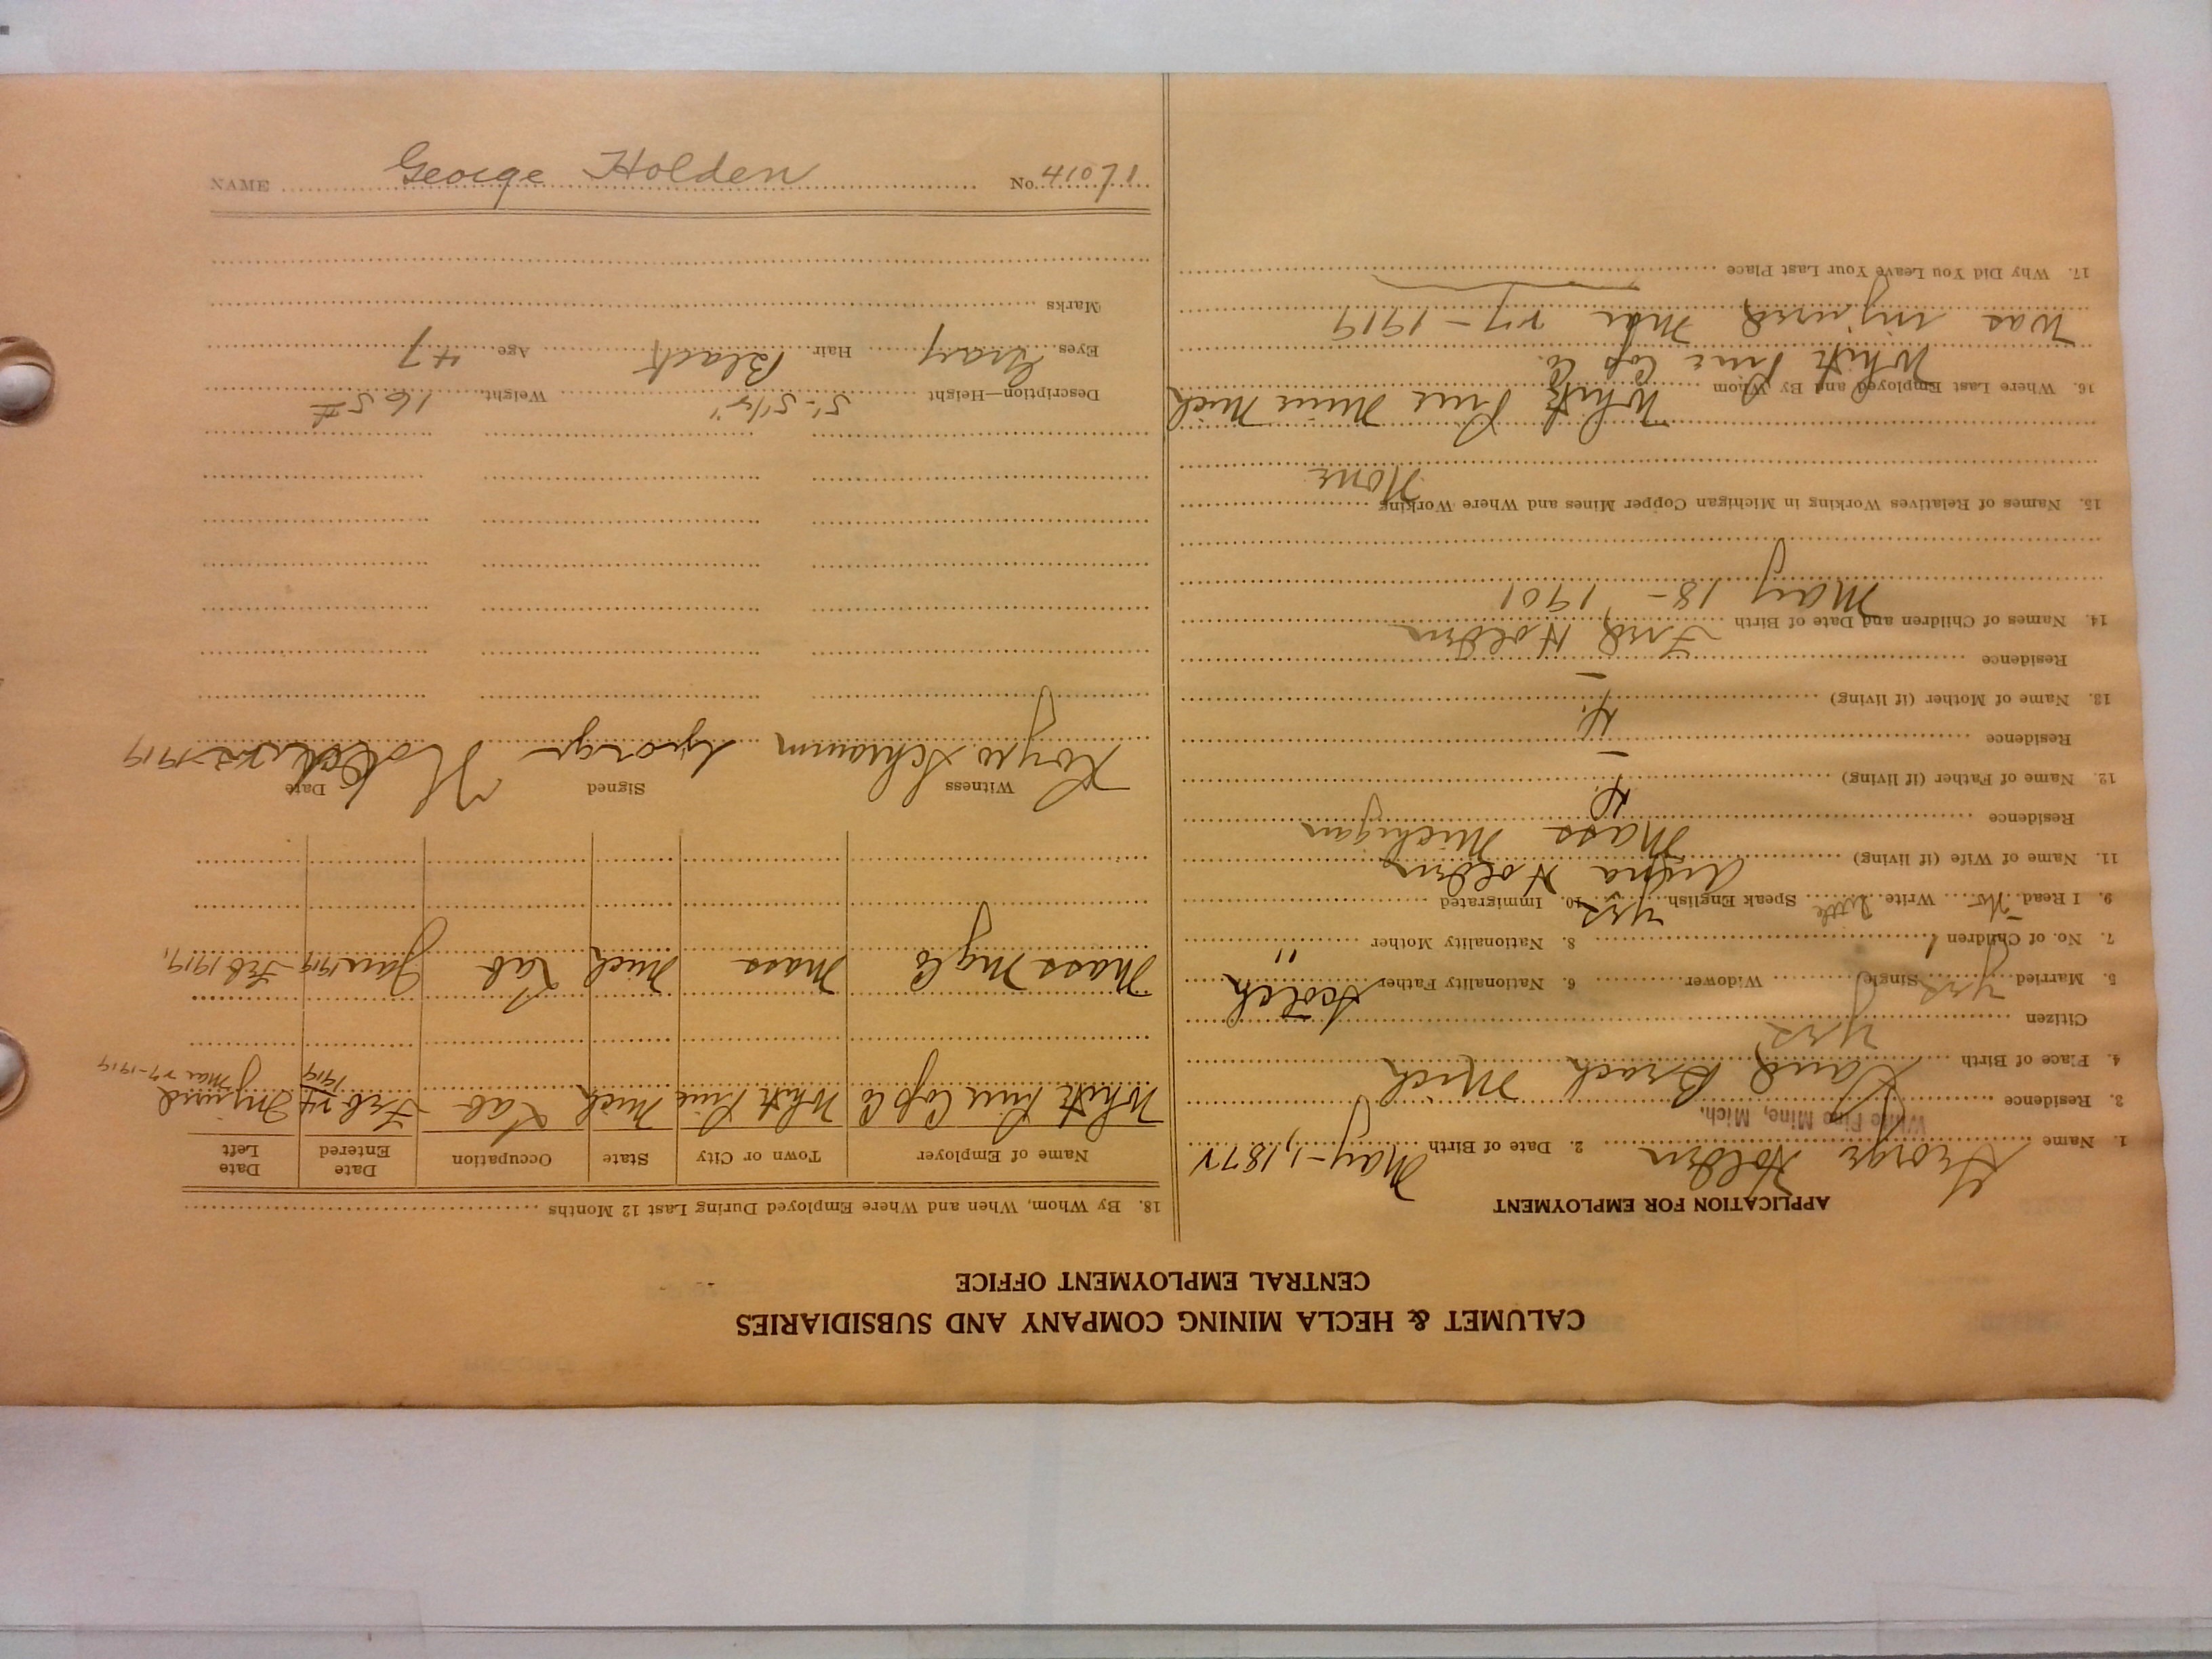 CALUMET & HECLA MINING COMPANY AND SUBSIDIARIES
CENTRAL EMPLOYMENT OFFICE
APPLICATION FOR EMPLOYMENT
1. Name George Holden 2. Date of Birth May-1, 1872
3. Residence White Pine Mine, Mich.
4. Place of Birth Sand Beach Mich
Citizen yes
5. Married yes Single Widower 6. Nationality Father Scotch
7. No. of Children 1 8. Nationality Mother "
9. I Read No Write Little Speak English yes 10. Immigrated
11. Name of Wife (if living) Holden
Residence Mass Michigan
12. Name of Father (if living)
Residence -
13. Name of Mother (if living)
Residence -
14. Names of Children and Date of Birth Fred Holden
May 18 - 1901
15. Names of Relatives Working in Michigan Copper Mines and Where Working None
White Pine Mine Mich
16. Where Last Employed and By Whom
White Pine Cop Co.
Was injured Mar 27 - 1919
17. Why Did You Leave Your Last Place
18. By Whom, When and Where Employed During Last 12 Months
Name of Employer Town or City State Occupation Date Entered Date Left
White Pine Cop Co White Pine Mich Lab Feb 24 1919 Injured Mar 27-1919
Mass Mg Co Mass Mich Lab Jan 1919 Feb 1919
Witness Signed Date
Schramm George Holden 1919
Description—Height 5'-5 1/2" Weight 165#
Eyes Gray Hair Black Age 47
Marks
NAME George Holden No. 41071